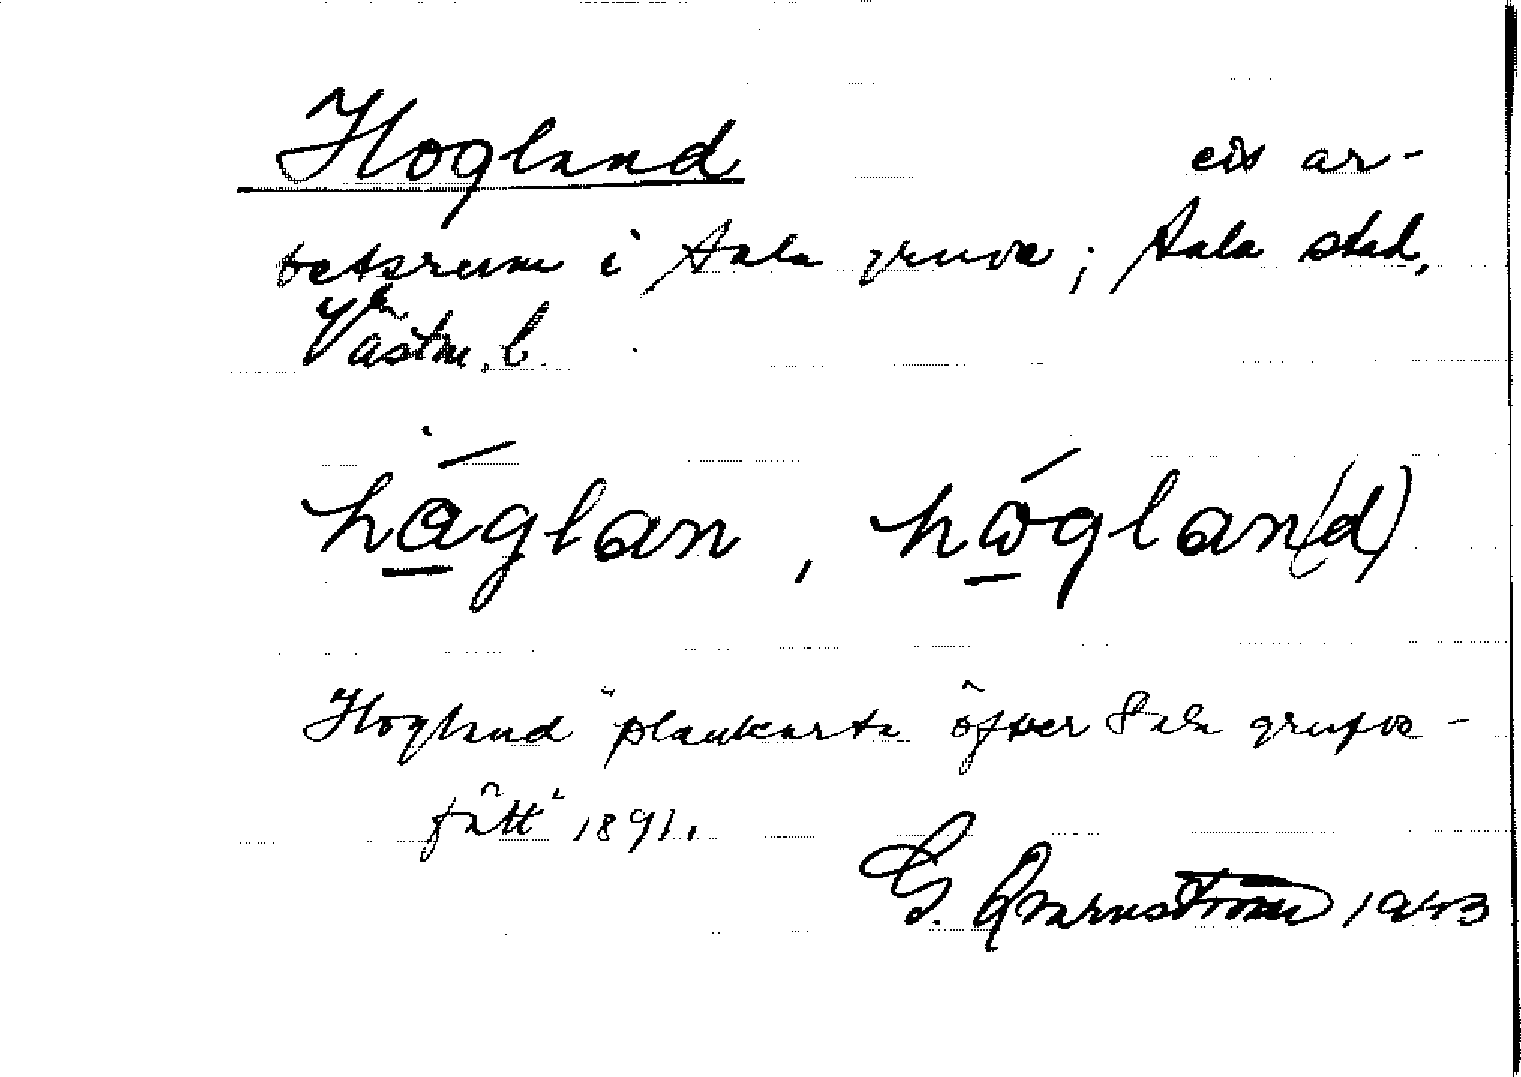 Hogland ett ar-
betsrum i Sala gruva; Sala stad,
Västm. l.
háglan, hógland(d)
Hogland "plankarta öfver Sala grufve-
fält" 1891.
G. Qvarnström 1943